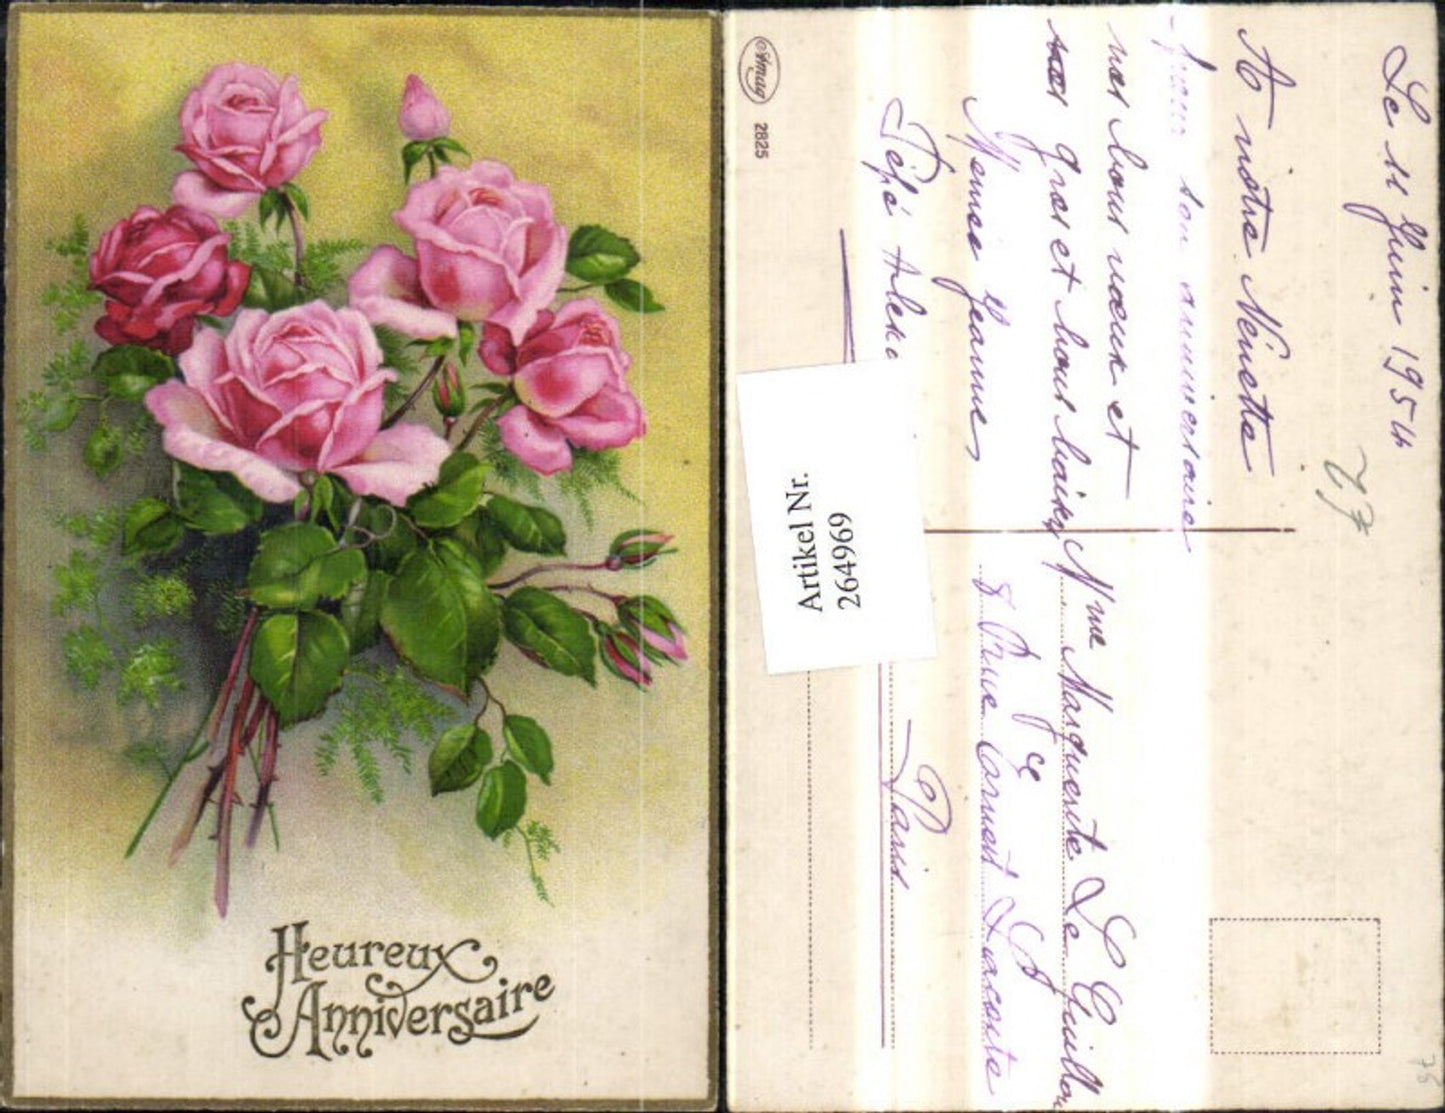 Heureux
Anniversaire
Amag
2825
Le 11 Juin 1954
A nôtre Nénette
pour son anniversaire
nos bons voeux et
nos gros et bons baisers
Mémé Jeanne
Pépé Alex
Artikel Nr.
264969
Mme Marguerite Le Guillou
8 Rue Ernest Lacoste
Paris